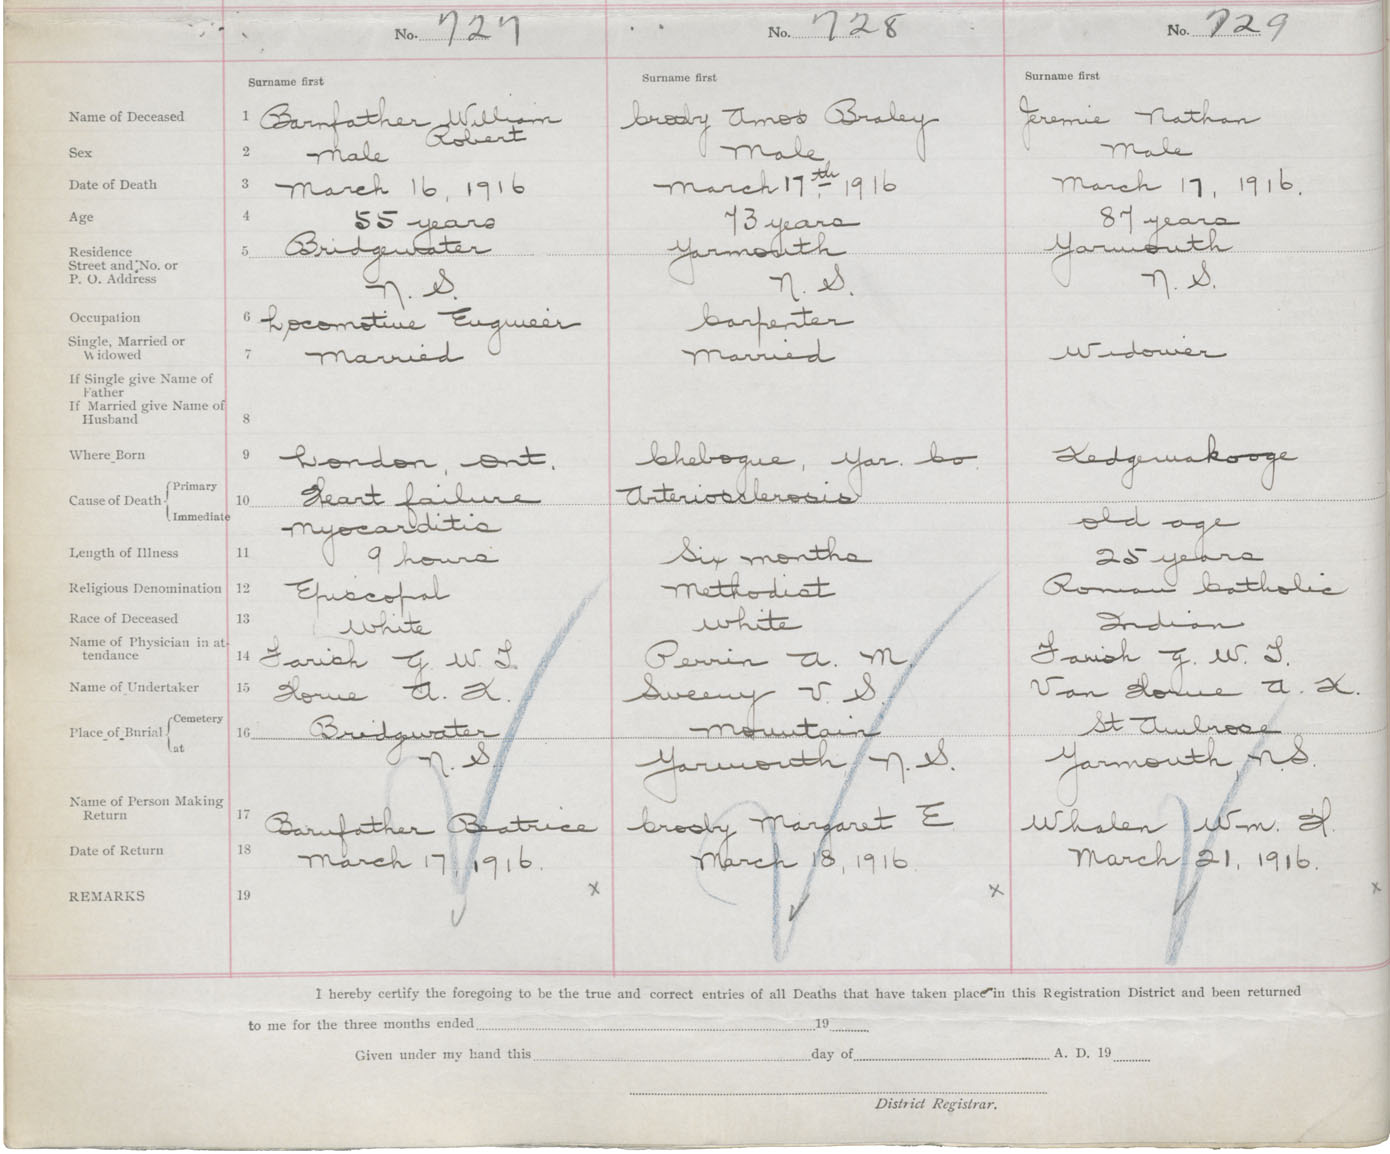 No. 727 No. 728 No. 729
Surname first Surname first Surname first
Name of Deceased 1 Barnfather William Robert Crosby Amos Braley Jeremie Nathan
Sex 2 Male Male Male
Date of Death 3 March 16, 1916 March 17th 1916 March 17, 1916.
Age 4 55 years 73 years 87 years
Residence 5 Bridgewater Yarmouth Yarmouth
Street and No. or
P. O. Address N. S. N. S. N. S.
Occupation 6 Locomotive Engineer Carpenter
Single, Married or
Widowed 7 Married Married Widower
If Single give Name of
Father
If Married give Name of
Husband 8
Where Born 9 London, Ont. Chebogue, Yar. Co
Cause of Death Primary 10 Heart failure Arteriosclerosis
Immediate Myocarditis old age
Length of Illness 11 9 hours Six months 25 years
Religious Denomination 12 Episcopal Methodist Roman Catholic
Race of Deceased 13 White White Indian
Name of Physician in at-
tendance 14 Farish G. W. T. Perrin A. M. Farish G. W. T.
Name of Undertaker 15 Horne A. K. Sweeny V. S Van Horne A. K.
Place of Burial Cemetery 16 Bridgwater Mountain St Ambrose
at N. S. Yarmouth, N. S. Yarmouth, N.S.
Name of Person Making
Return 17 Barnfather Beatrice Crosby Margaret E Whalen Wm. H.
Date of Return 18 March 17, 1916. March 18, 1916. March 21, 1916.
REMARKS 19 x x x
I hereby certify the foregoing to be the true and correct entries of all Deaths that have taken place in this Registration District and been returned
to me for the three months ended 19
Given under my hand this day of A. D. 19
District Registrar.